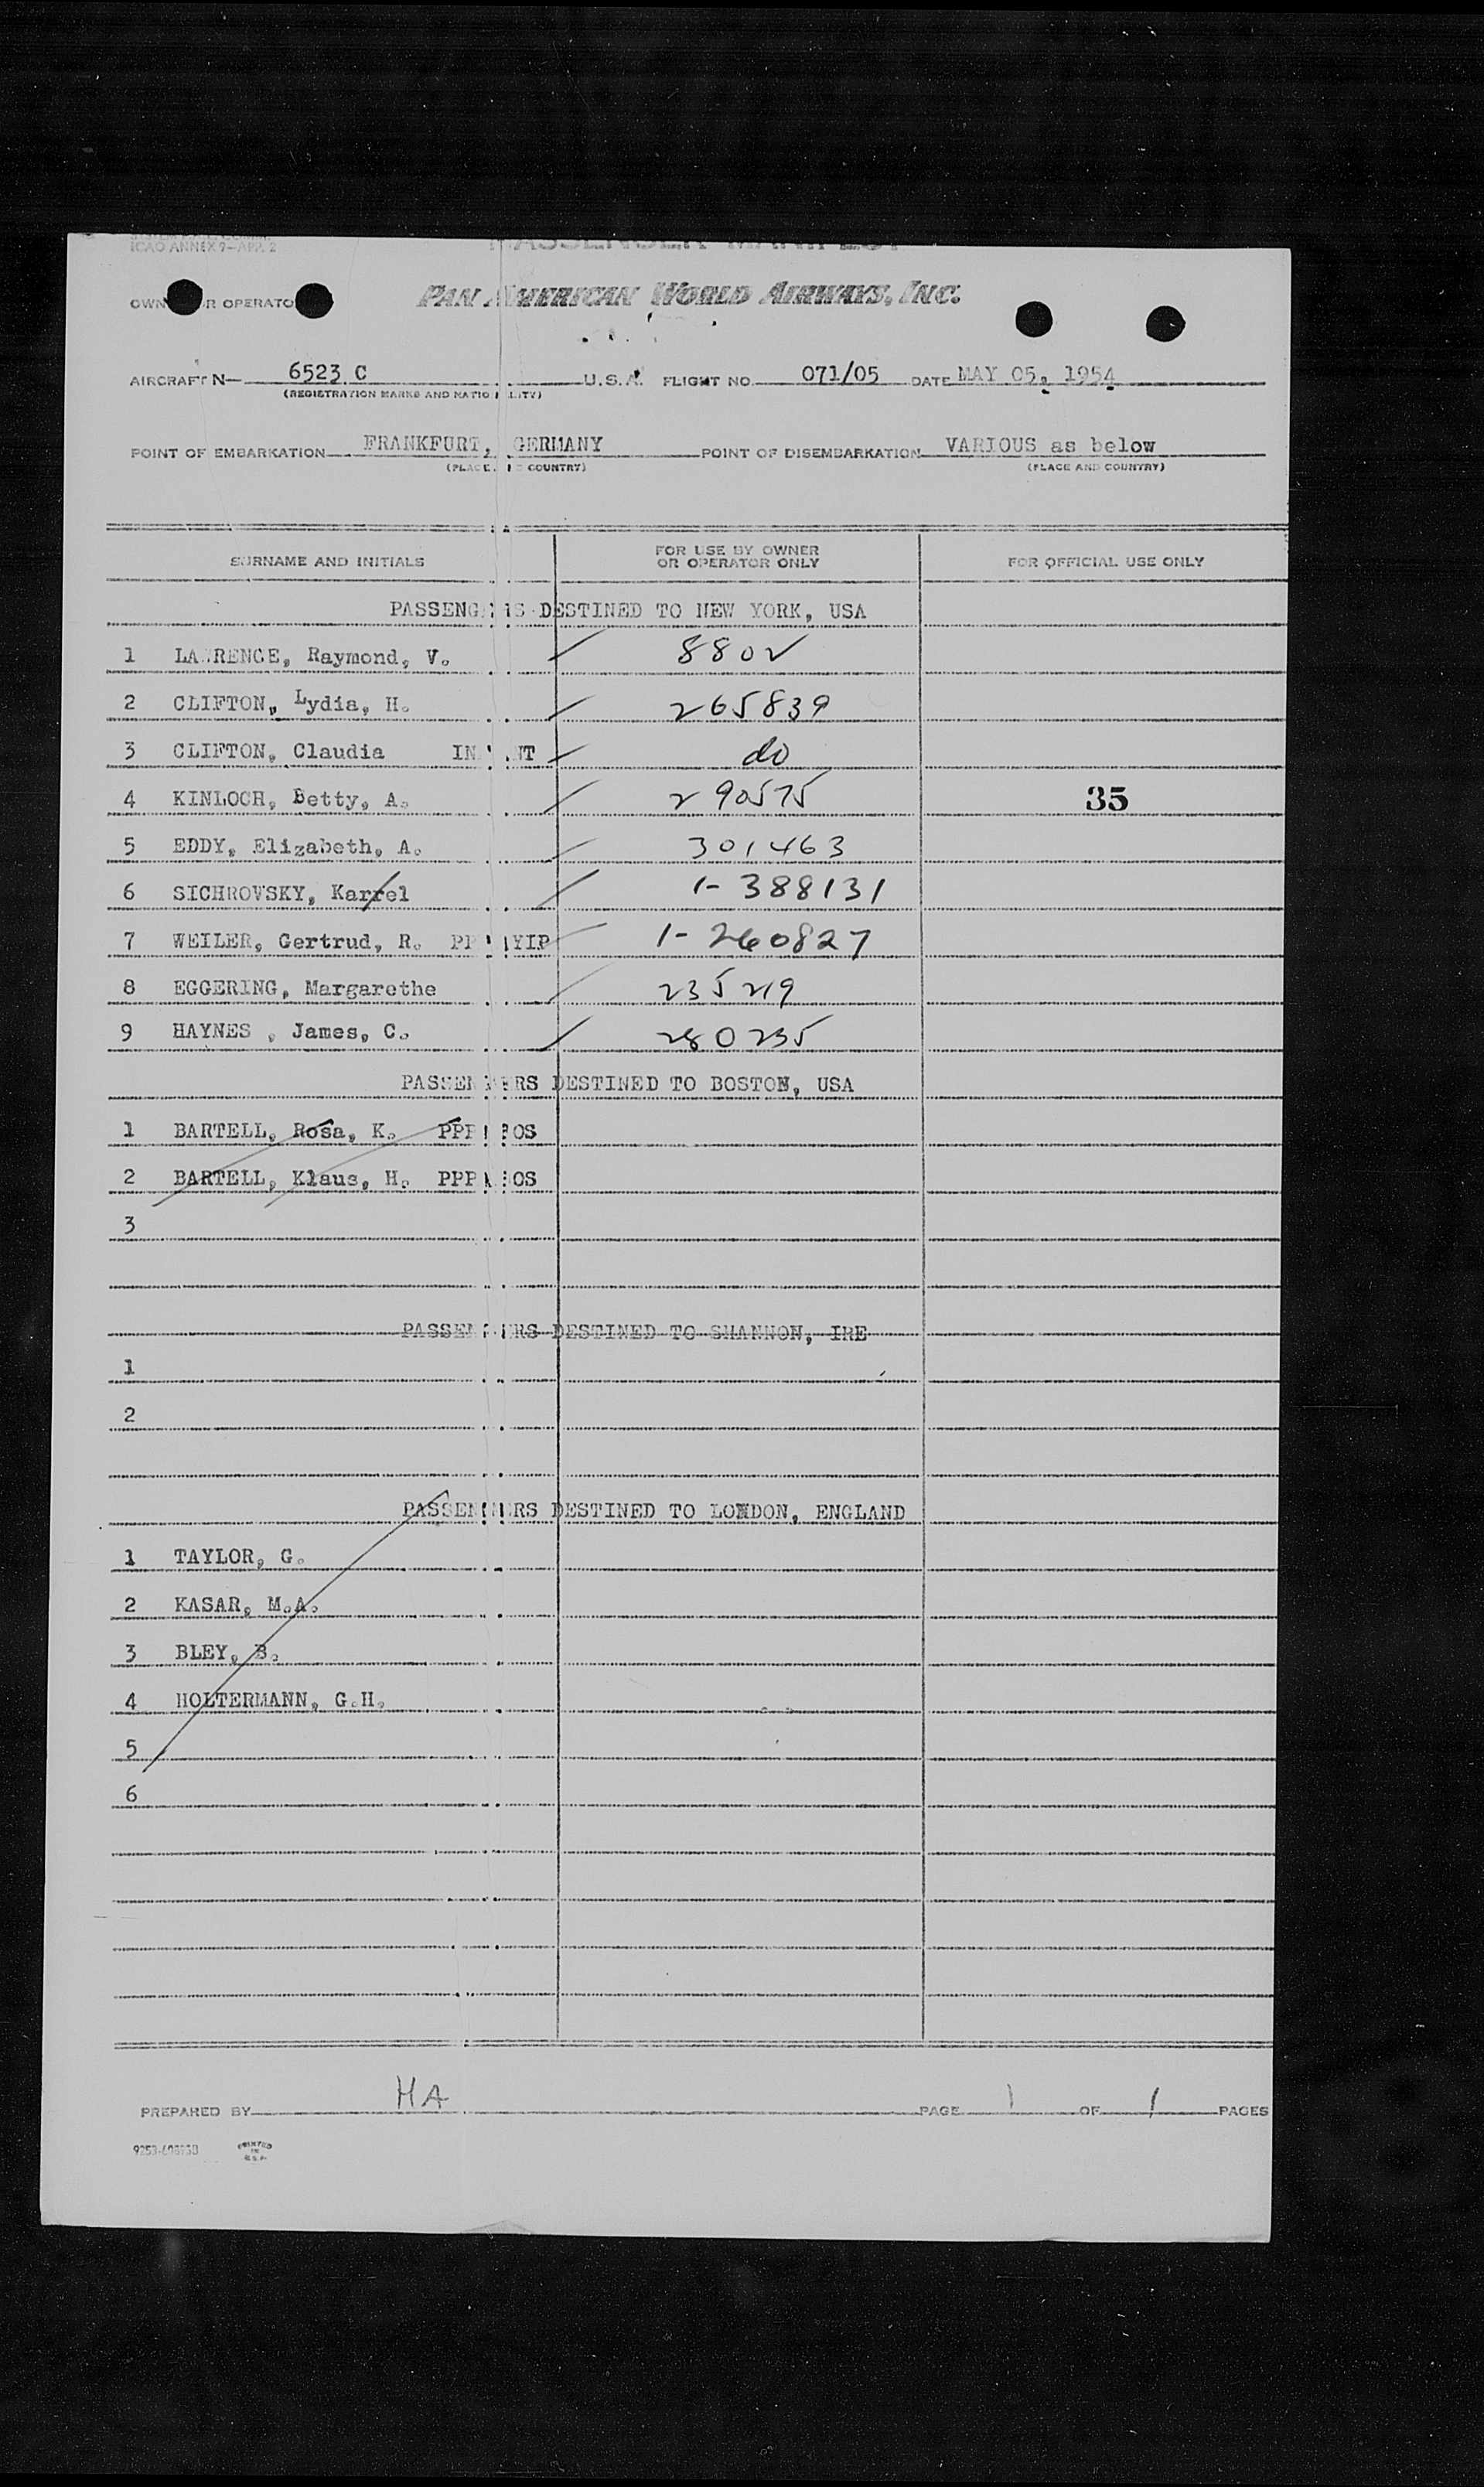 ICAO ANNEX 9—APP. 2
PASSENGER MANIFEST
OWNER OR OPERATOR PAN AMERICAN WORLD AIRWAYS, INC.
AIRCRAFT N— 6523 C U.S.A. FLIGHT NO. 071/05 DATE MAY 05, 1954
(REGISTRATION MARKS AND NATIONALITY)
POINT OF EMBARKATION FRANKFURT, GERMANY POINT OF DISEMBARKATION VARIOUS as below
(PLACE AND COUNTRY) (PLACE AND COUNTRY)
SURNAME AND INITIALS FOR USE BY OWNER OR OPERATOR ONLY FOR OFFICIAL USE ONLY
PASSENGERS DESTINED TO NEW YORK, USA
1 LAWRENCE, Raymond, V. 8802
2 CLIFTON, Lydia, H. 265839
3 CLIFTON, Claudia INFANT do
4 KINLOCH, Betty, A. 290575 35
5 EDDY, Elizabeth, A. 301463
6 SICHROVSKY, Karrel 1-388131
7 WEILER, Gertrud, R. 1-260827
8 EGGERING, Margarethe 235219
9 HAYNES , James, C. 280235
PASSENGERS DESTINED TO BOSTON, USA
1 BARTELL, Rosa, K.
2 BARTELL, Klaus, H.
3
PASSENGERS DESTINED TO SHANNON, IRE
1
2
PASSENGERS DESTINED TO LONDON, ENGLAND
1 TAYLOR, G.
2 KASAR, M.A.
3 BLEY, B.
4 HOLTERMANN, G.H.
5
6
PREPARED BY HA PAGE 1 OF 1 PAGES
PRINTED IN U.S.A.